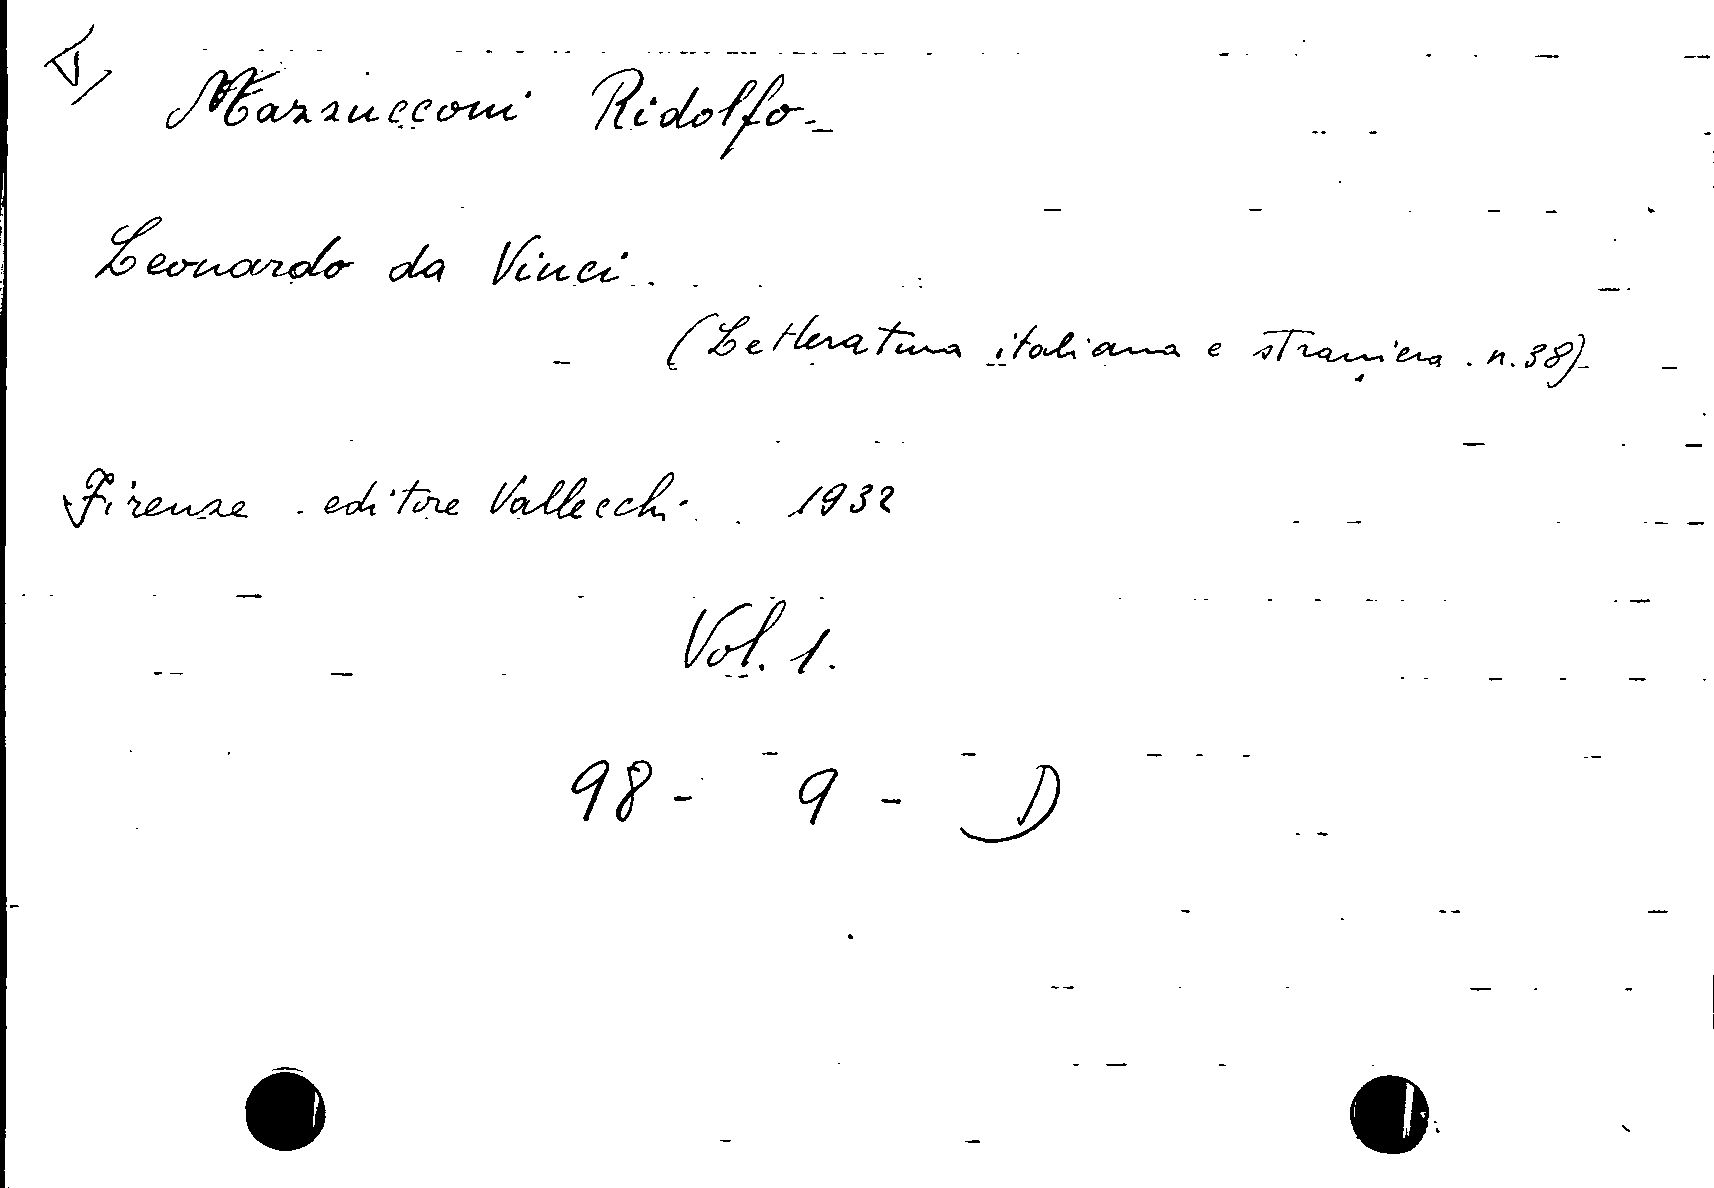 Mazzucconi Ridolfo_
Leonardo da Vinci.
(Letteratura italiana e straniera . n. 38)
Firenze . editore Vallecchi . 1932
Vol. 1.
98 - 9 - D